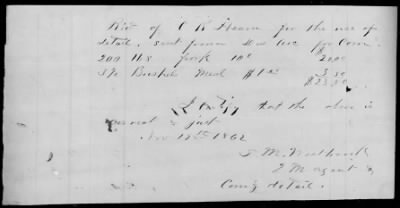 Rcd of C R Hearn for the use of
detail, sent from for Corn.
200 lbs pork 10c $20.00
Bushels Meal $1 3.50
$23.50
I certify that the above is
correct & just
Nov 12th 1862
J. M.
Agent &
Comg detail.